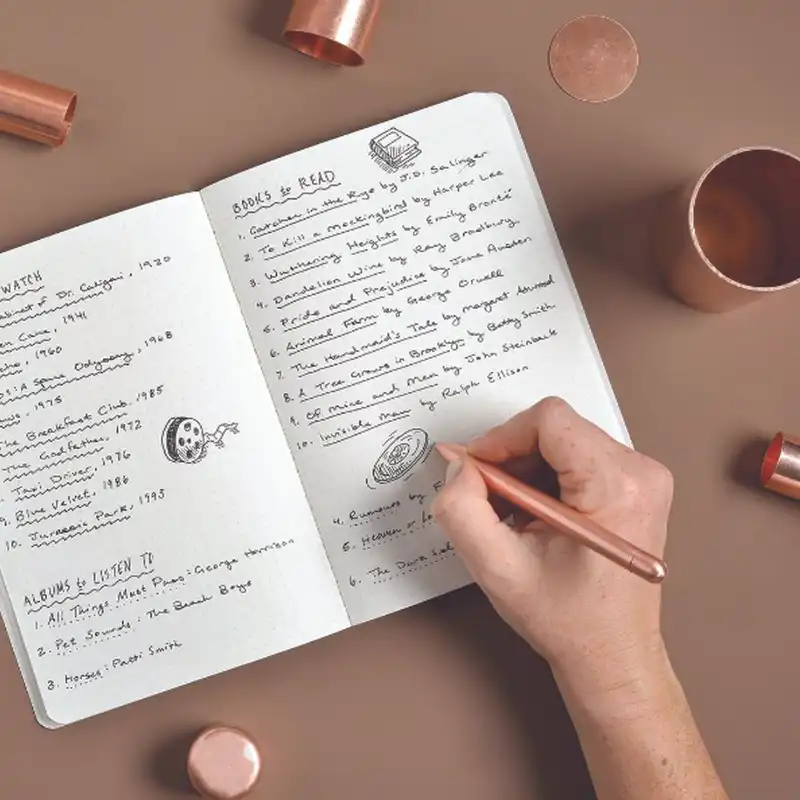 WATCH
abinet of Dr. Caligari, 1920
en Cane, 1941
cho, 1960
01: A Space Odyssey, 1968
aws, 1975
The Breakfast Club, 1985
The Godfather, 1972
Taxi Driver, 1976
9. Blue Velvet, 1986
10. Jurassic Park, 1993
ALBUMS to LISTEN TO
1. All Things Must Pass: George Harrison
2. Pet Sounds: The Beach Boys
3. Horses: Patti Smith
BOOKS to READ
1. Catcher in the Rye by J.D. Salinger
2. To Kill a Mockingbird by Harper Lee
3. Wuthering Heights by Emily Brontë
4. Dandelion Wine by Ray Bradbury
5. Pride and Prejudice by Jane Austen
6. Animal Farm by George Orwell
7. The Handmaid's Tale by Margaret Atwood
8. A Tree Grows in Brooklyn by Betty Smith
9. Of Mice and Men by John Steinbeck
10. Invisible Man by Ralph Ellison
4. Rumours by F
5. Heaven or La
6. The Dark Sid